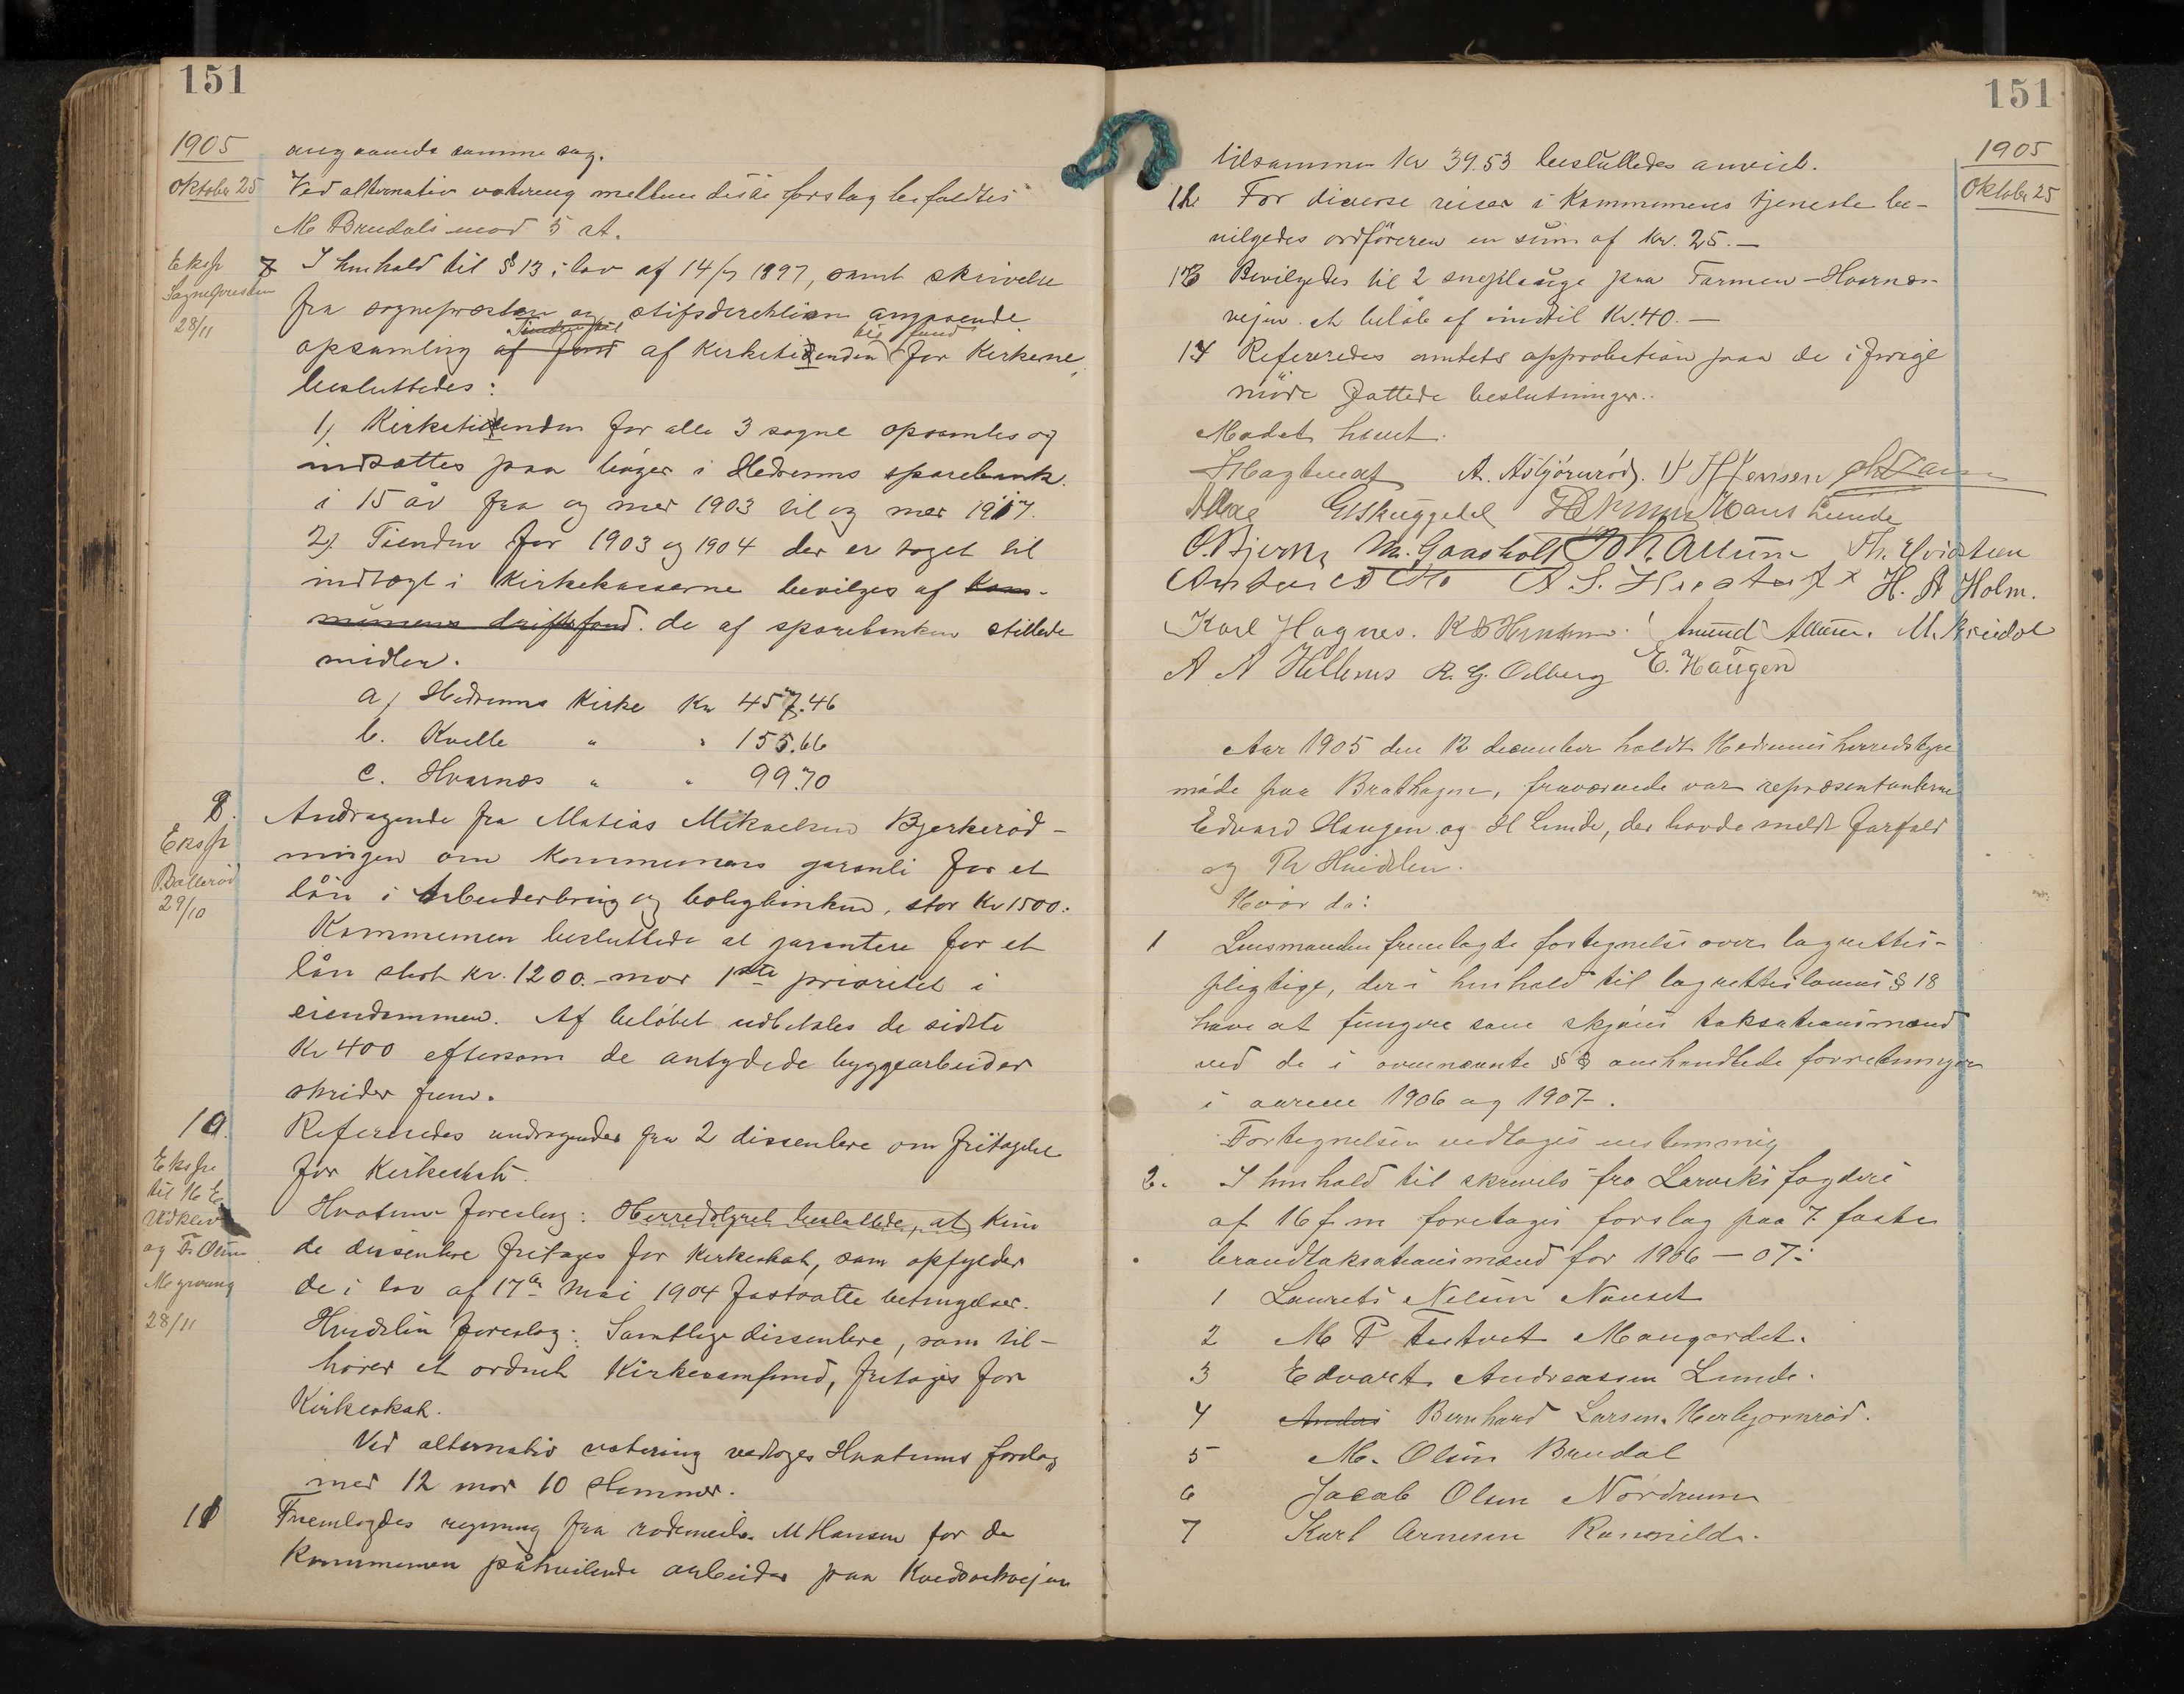 151
1905
Oktober 25
angaaende samme sag.
Ved alternativ votering mellem disse forslag bifaldtes
M Brudals mod 5 st.
Eksp
Sognepresten
28/11
7 I henhold til § 13 i lov af 14/7 1897, samt skrivelse
fra sognepresten og stiftsdirektionen angaaende
opsamling af fond af Kirketienden til fond for Kirkerne,
besluttedes:
1) Kirketienden for alle 3 sogne opsamles og
indsættes paa renter i Hedrums sparebank.
i 15 år fra og med 1903 til og med 1917.
2) Tienden for 1903 og 1904 der er taget til
indtægt i Kirkekasserne bevilges af Kom-
munens driftsfond. de af sparebanken stillede
midler.
a) Hedrums Kirke Kr 457.46
b. Kvelle " " 155.66
c. Hvarnes " " 99.70
8.
Eksp
P. Bøllerød
29/10
Andragende fra Matias Mikaelsen Bjerkerød-
ningen om Kommunens garanti for et
lån i Arbeiderbrug og boligbanken, stor Kr 1500.
Kommunen besluttede at garantere for et
lån stort Kr. 1200.- mod 1ste prioritet i
eiendommen. Af beløbet udbetales de sidste
Kr 400 eftersom de antydede byggearbeider
skrider frem.
10.
Ekspe
til
og Fr Olsen
28/11
Refereredes andragender fra 2 dissentere om fritagelse
for Kirkeskat.
Hvatums foreslog: Herredstyret besluttede, at kun
de dissentere fritages for Kirkeskat, som opfylder
de i lov af 17de Mai 1904 fastsatte betingelser.
Hvidsten foreslog: Samtlige dissentere, som til-
hører et ordnet Kirkesamfund, fritages for
Kirkeskat.
Ved alternativ votering vedtoges Hvatums forslag
med 12 mod 10 stemmer.
11
Fremlagdes regning fra rodemester M Hansen for de
Kommunen påhvilende arbeider paa
151
1905
Oktober 25
tilsammen Kr 39.53 besluttedes anvist.
12 For diverse reiser i Kommunens tjeneste be-
vilgedes ordføreren en sum af Kr. 25.-
13 Bevilgedes til 2 sneplauge paa Farmen-Hvarnes-
vejen et beløb af indtil Kr. 40.-
14 Refereredes amtets approbation paa de i forrige
møde fattede beslutninger.
Mødet hævet.
A. Asbjørnrød. H Jensen
G Skuggedal Hans Lunde
O. Bjerke M. Gaasholt Th. Hvidsten
H. A Holm.
Karl Hagnes. Amund Allum. M. Brudal
A A Hellenes R. G. Odberg E. Haugen
Aar 1905 den 12 december holdt Hedrums herredstyre
møde paa Brathagen, fraværende var repræsentanterne
Edvard Haugen og H Lunde, der havde meldt forfald
og Th Hvidsten.
Hvor da:
1 Lensmanden fremlagde fortegnelse over lagrettes-
pligtige, der i henhold til lagretteslovens § 18
have at fungere som skjøns taksationsmænd
ved de i ovennævnte § omhandlede forretninger
i aarene 1906 og 1907.
Fortegnelsen vedtoges enstemmig
2. I henhold til skrivelse fra Larviks fogderi
af 16 f m foretoges forslag paa 7 faste
brandtaksationsmænd for 1906-07:
1 Laurits Nilsen Nauset
2 M P Tutvet Mougordet.
3 Edvart Andreassen Lunde.
4 Anders Bernhard Larsen. Herbjørnrød.
5 M. Olsen Brudal
6 Jacob Olsen Nordrum
7 Karl Arnesen